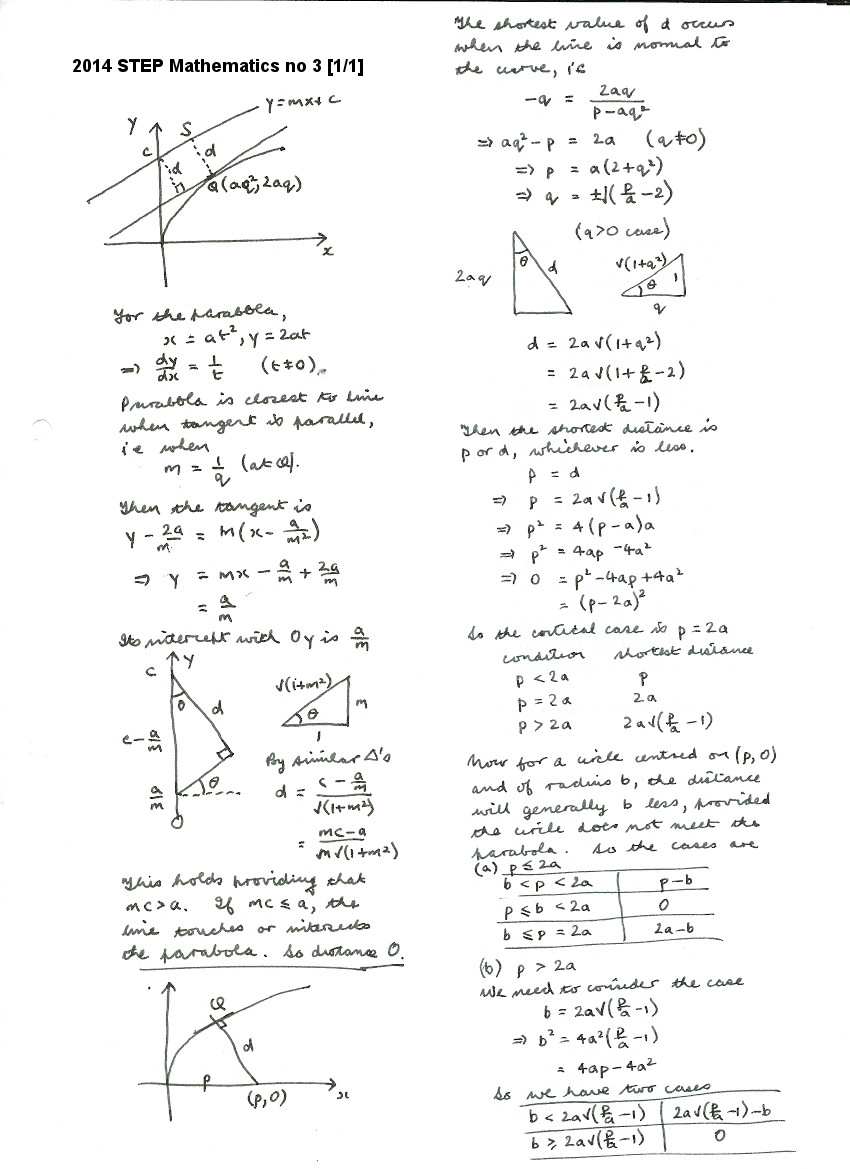 2014 STEP Mathematics no 3 [1/1]
y=mx+c
y
S
c
d
d
Q(aq²,2aq)
x
For the parabola,
x = at², y = 2at
⇒ dy/dx = 1/t (t≠0).
Parabola is closest to line
when tangent is parallel,
i.e when
m = 1/q (at Q).
Then the tangent is
y - 2a/m = m(x - a/m²)
⇒ y = mx - a/m + 2a/m
= a/m
Its intercept with Oy is a/m
y
c
θ
d
c - a/m
a/m
θ
O
√(1+m²)
m
θ
1
By similar Δ's
d = (c - a/m)/√(1+m²)
= (mc-a)/(m√(1+m²))
This holds providing that
mc>a. If mc≤a, the
line touches or intersects
the parabola. So distance 0.
Q
d
p
(p,0)
x
The shortest value of d occurs
when the line is normal to
the curve, i.e
-q = 2aq/(p-aq²)
⇒ aq²-p = 2a (q≠0)
⇒ p = a(2+q²)
⇒ q = ±√(p/a -2)
(q>0 case)
2aq
θ
d
√(1+q²)
1
θ
q
d = 2a√(1+q²)
= 2a√(1+p/a -2)
= 2a√(p/a -1)
Then the shortest distance is
p or d, whichever is less.
p = d
⇒ p = 2a√(p/a -1)
⇒ p² = 4(p-a)a
⇒ p² = 4ap -4a²
⇒ 0 = p²-4ap+4a²
= (p-2a)²
So the critical case is p=2a
condition shortest distance
p < 2a p
p = 2a 2a
p > 2a 2a√(p/a -1)
Now for a circle centred on (p,0)
and of radius b, the distance
will generally b less, provided
the circle does not meet the
parabola. So the cases are
(a) p ≤ 2a
b < p < 2a p-b
p ≤ b < 2a 0
b ≤ p = 2a 2a-b
(b) p > 2a
We need to consider the case
b = 2a√(p/a -1)
⇒ b² = 4a²(p/a -1)
= 4ap-4a²
So we have two cases
b < 2a√(p/a -1) 2a√(p/a -1)-b
b ≥ 2a√(p/a -1) 0